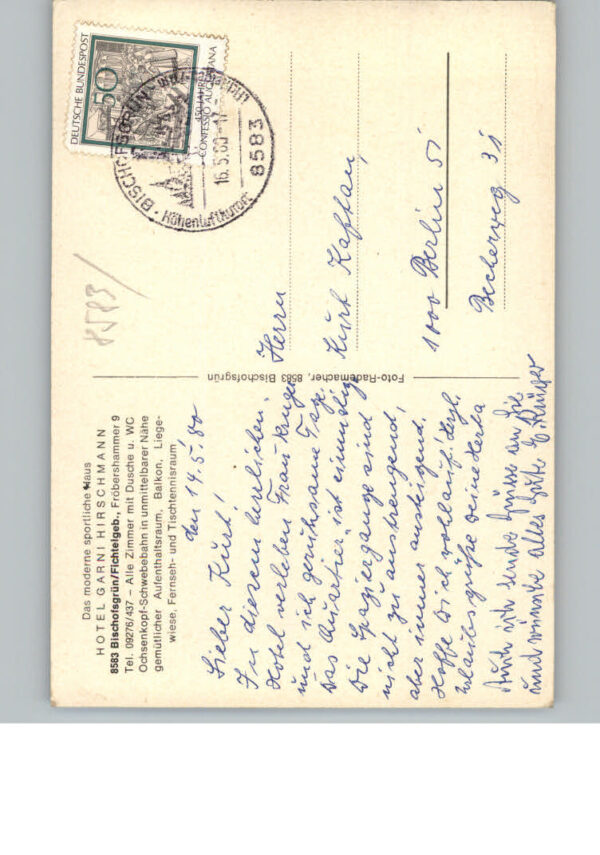 Das moderne sportliche Haus
HOTEL GARNI HIRSCHMANN
8583 Bischofsgrün/Fichtelgeb., Fröbershammer 9
Tel. 09276/437 – Alle Zimmer mit Dusche u. WC
Ochsenkopf-Schwebebahn in unmittelbarer Nähe
gemütlicher Aufenthaltsraum, Balkon, Liege-
wiese, Fernseh- und Tischtennisraum
den 14.5.80
Lieber Kurt!
In diesem herrlichen
Hotel verleben Frau Krüger
und ich geruhsame Tage.
Das Quartier ist einmalig
Die Spaziergänge sind
nicht zu anstrengend,
aber immer ansteigend.
Hoffe Dich wohlauf! Herzl.
Urlaubsgrüße Deine Herta
Auch ich sende Grüsse an Sie
und wünsche alles Gute E. Krüger
Foto-Rademacher, 8583 Bischofsgrün
8583/
DEUTSCHE BUNDESPOST
50
450 JAHRE
CONFESSIO AUGUSTANA
BISCHOFSGRÜN
16.5.80-17
8583
Höhenluftkurort
Herrn
Kurt Kaftan,
1000 Berlin 51
Becherweg 31